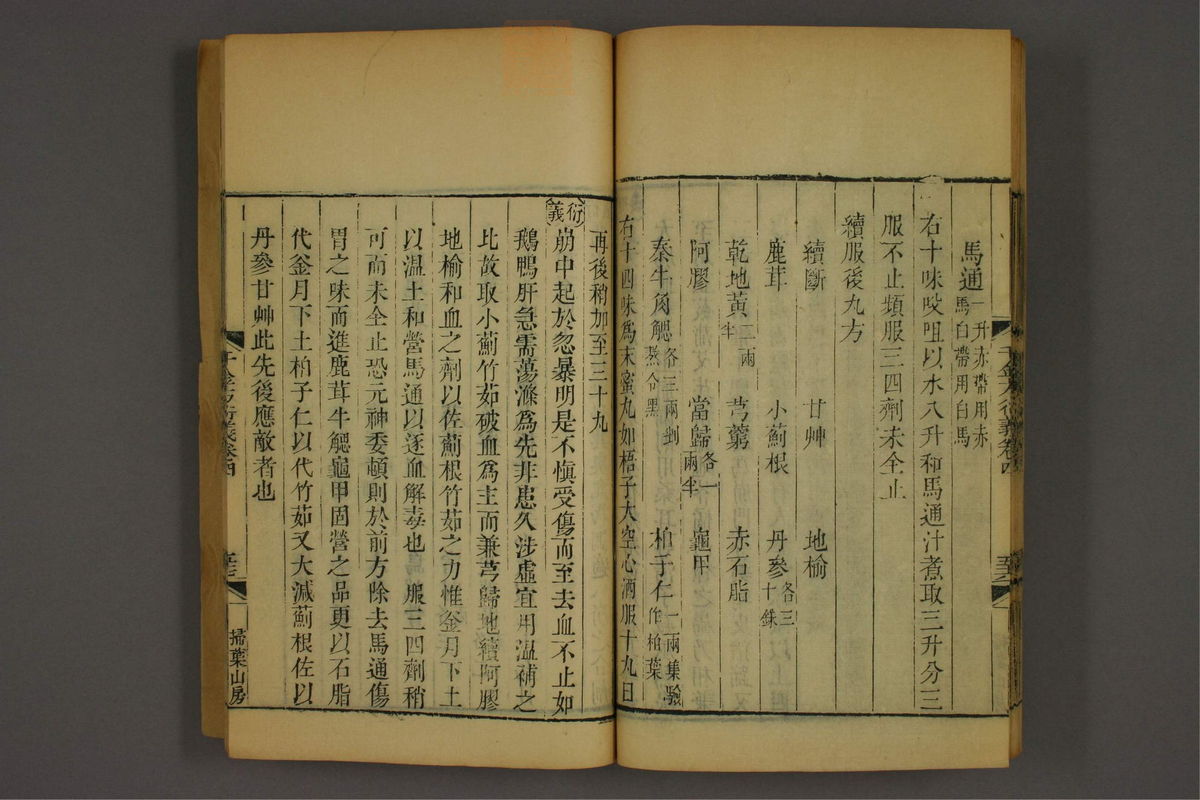 馬通一升赤帶用赤馬白帶用白馬
右十味㕮咀以水八升和馬通汁煮取三升分三
服不止頻服三四劑未全止
續服後九方
續斷 甘艸 地榆
鹿茸 小薊根 丹參各三十銖
乾地黃二兩半 芎藭 赤石脂
阿膠 當歸各一兩半 龜甲
秦牛角䚡各三兩剉熬令黑 柏子仁一兩集驗作柏葉
右十四味爲末蜜丸如梧子大空心酒服十丸日
再後稍加至三十丸
衍義 崩中起於忽暴明是不愼受傷而至去血不止如
鵝鴨肝急需蕩滌爲先非患久涉虛宜用溫補之
比故取小薊竹茹破血爲主而兼芎歸地續阿膠
地榆和血之劑以佐薊根竹茹之力惟釜月下土
以溫土和營馬通以逐血解毒也服三四劑稍
可而未全止恐元神委頓則於前方除去馬通傷
胃之味而進鹿茸牛䚡龜甲固營之品更以石脂
代釜月下土柏子仁以代竹茹又大減薊根佐以
丹參甘艸此先後應敵者也
千金方衍義卷四
掃葉山房